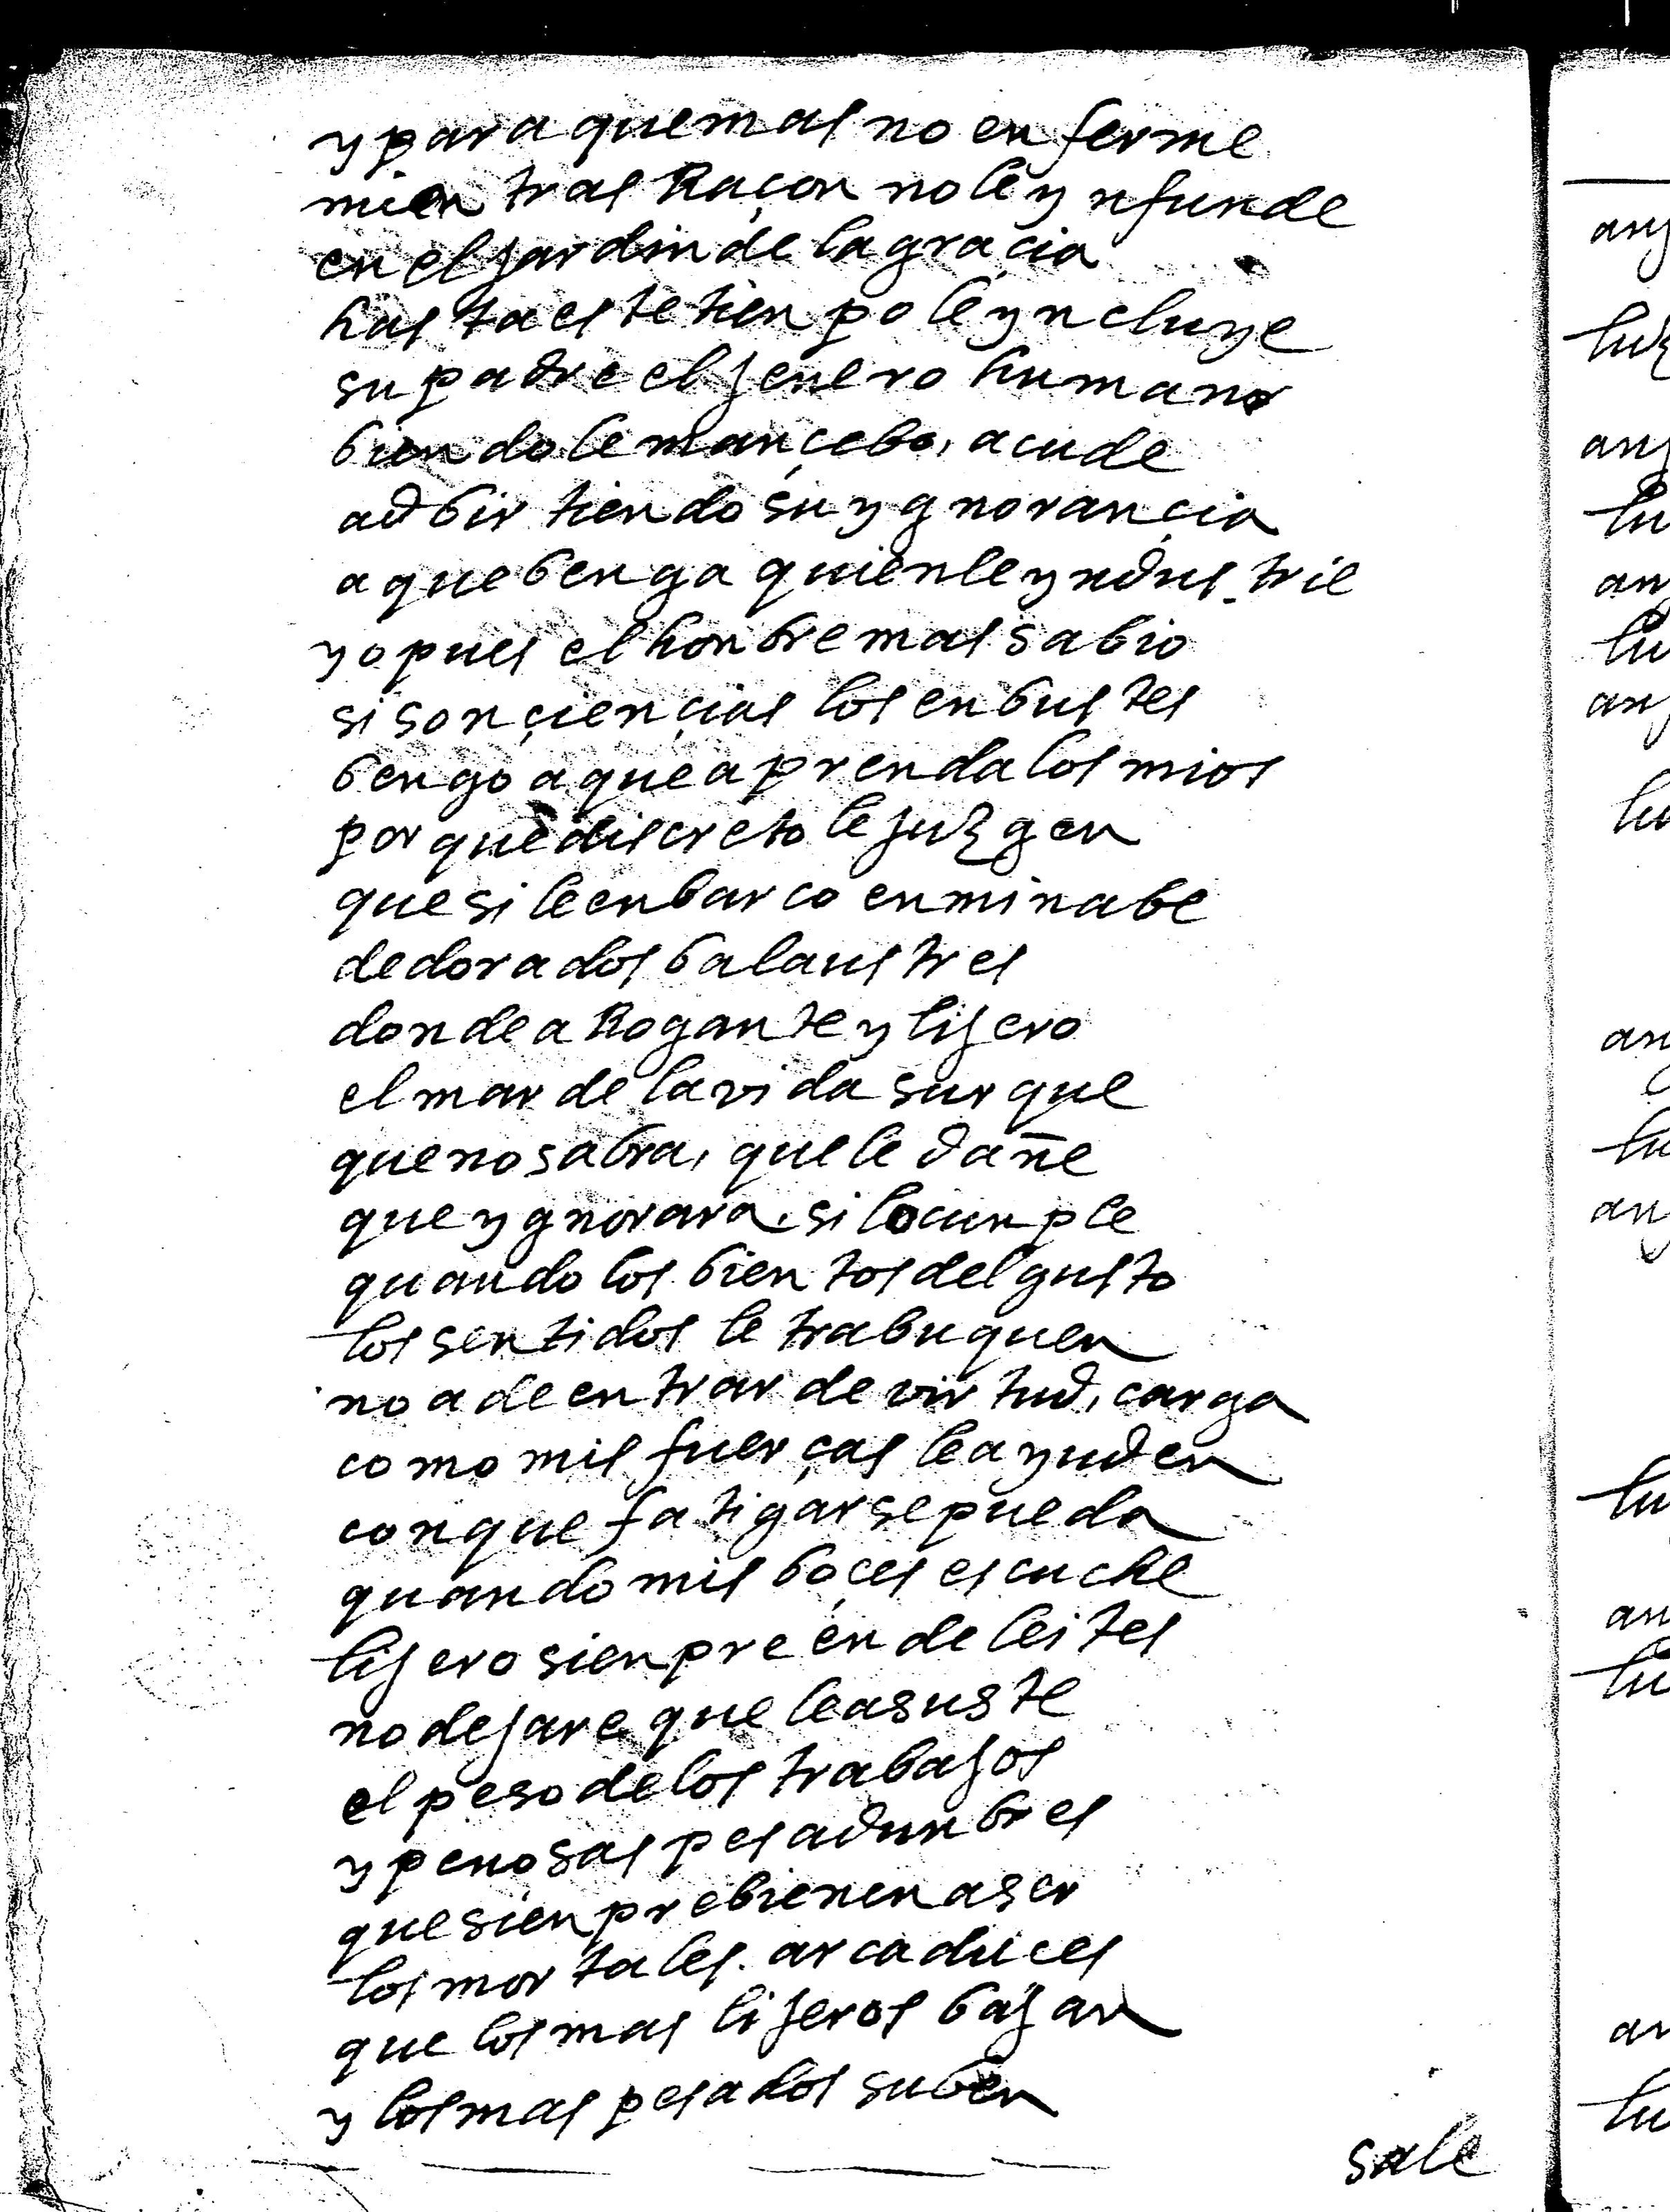 y para que mas no enferme
mientras Raçon no le ynfunde
en el jardin de la graçia
hasta este tienpo le yncluye
su padre el jenero humano
biendole mançebo, acude
adbirtiendo su ygnorançia
a que benga quien le yndustrie
yo pues el honbre mas sabio
si son çiençias los enbustes
bengo a que aprenda los mios
por que discreto le juzgen
que si le enbarco en mi nabe
de dorados balaustres
donde aRogante y lijero
el mar de la vida surque
que no sabra, que le dañe
que ygnorara. si lo cunple
quando los bientos del gusto
los sentidos le trabuquen
no a de entrar de virtud, carga
como mis fuerças le ayuden
con que fatigarse pueda
quando mis boçes escuche
lijero sienpre en deleites
no dejare que le asuste
el peso de los trabajos
y penosas pesadunbres
que sienpre bienen a ser
los mortales. arcaduces
que los mas lijeros bajan
y los mas pesados suben
sale